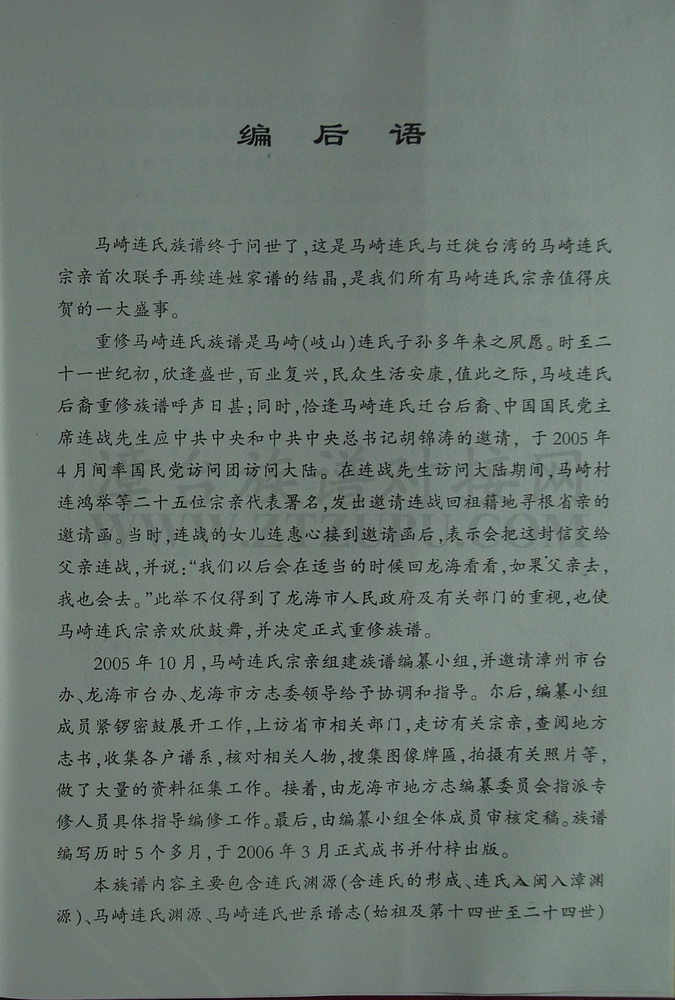 编后语
马崎连氏族谱终于问世了,这是马崎连氏与迁徙台湾的马崎连氏
宗亲首次联手再续连姓家谱的结晶,是我们所有马崎连氏宗亲值得庆
贺的一大盛事。
重修马崎连氏族谱是马崎(岐山)连氏子孙多年来之夙愿。时至二
十一世纪初,欣逢盛世,百业复兴,民众生活安康,值此之际,马岐连氏
后裔重修族谱呼声日甚;同时,恰逢马崎连氏迁台后裔、中国国民党主
席连战先生应中共中央和中共中央总书记胡锦涛的邀请,于2005年
4月间率国民党访问团访问大陆。在连战先生访问大陆期间,马崎村
连鸿举等二十五位宗亲代表署名,发出邀请连战回祖籍地寻根省亲的
邀请函。当时,连战的女儿连惠心接到邀请函后,表示会把这封信交给
父亲连战,并说:“我们以后会在适当的时候回龙海看看,如果父亲去,
我也会去。”此举不仅得到了龙海市人民政府及有关部门的重视,也使
马崎连氏宗亲欢欣鼓舞,并决定正式重修族谱。
2005年10月,马崎连氏宗亲组建族谱编纂小组,并邀请漳州市台
办、龙海市台办、龙海市方志委领导给予协调和指导。尔后,编纂小组
成员紧锣密鼓展开工作,上访省市相关部门,走访有关宗亲,查阅地方
志书,收集各户谱系,核对相关人物,搜集图像牌匾,拍摄有关照片等,
做了大量的资料征集工作。接着,由龙海市地方志编纂委员会指派专
修人员具体指导编修工作。最后,由编纂小组全体成员审核定稿。族谱
编写历时5个多月,于2006年3月正式成书并付梓出版。
本族谱内容主要包含连氏渊源(含连氏的形成、连氏入闽入漳渊
源)、马崎连氏渊源、马崎连氏世系谱志(始祖及第十四世至二十四世)